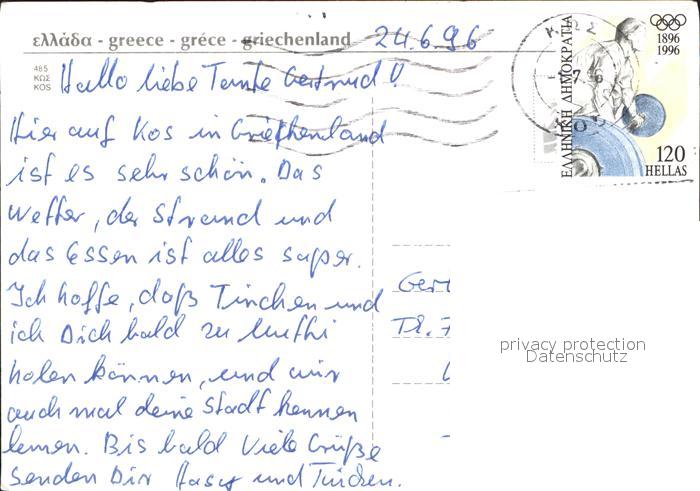 ελλάδα - greece - gréce - griechenland
24.6.96
485
ΚΩΣ
KOS
Hallo liebe Tante Gertrud!
Hier auf Kos in Griechenland
ist es sehr schön. Das
Wetter, der Strand und
das Essen ist alles super.
Ich hoffe, daß Tinchen und
ich Dich bald zu Muthi
holen können, und wir
auch mal deine Stadt kennen
lernen. Bis bald Viele Grüße
senden Dir und Tinchen.
ΚΩΣ
ΕΛΛΗΝΙΚΗ ΔΗΜΟΚΡΑΤΙΑ
1896
1996
120
HELLAS
Gert
privacy protection
Datenschutz